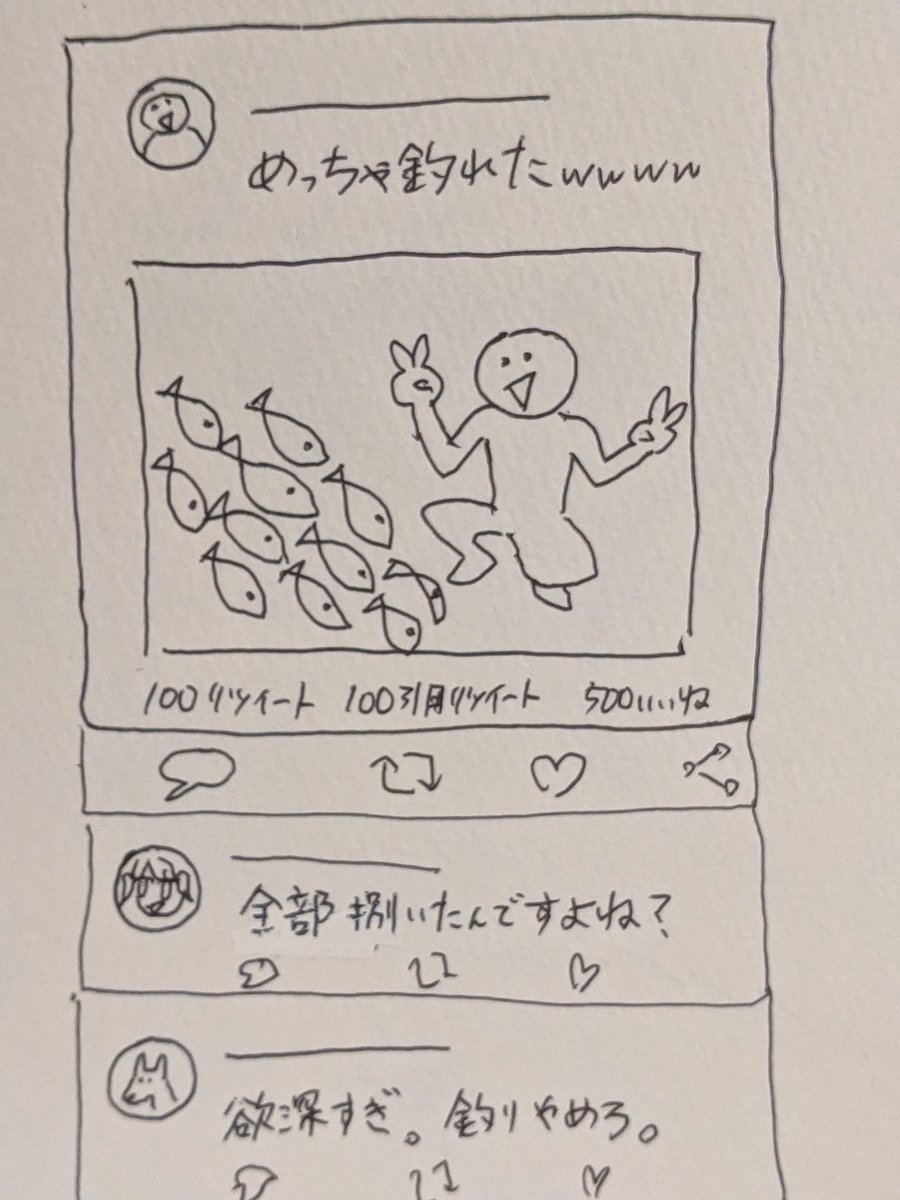 めっちゃ釣れたwwww
100リツイート 100引用リツイート 500いいね
全部捌いたんですよね?
欲深すぎ。釣りやめろ。